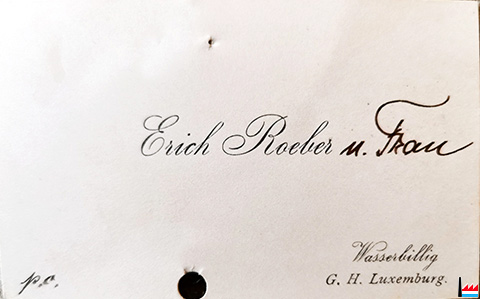 Erich Roeber u. Frau
Wasserbillig
G. H. Luxemburg.
p.c.